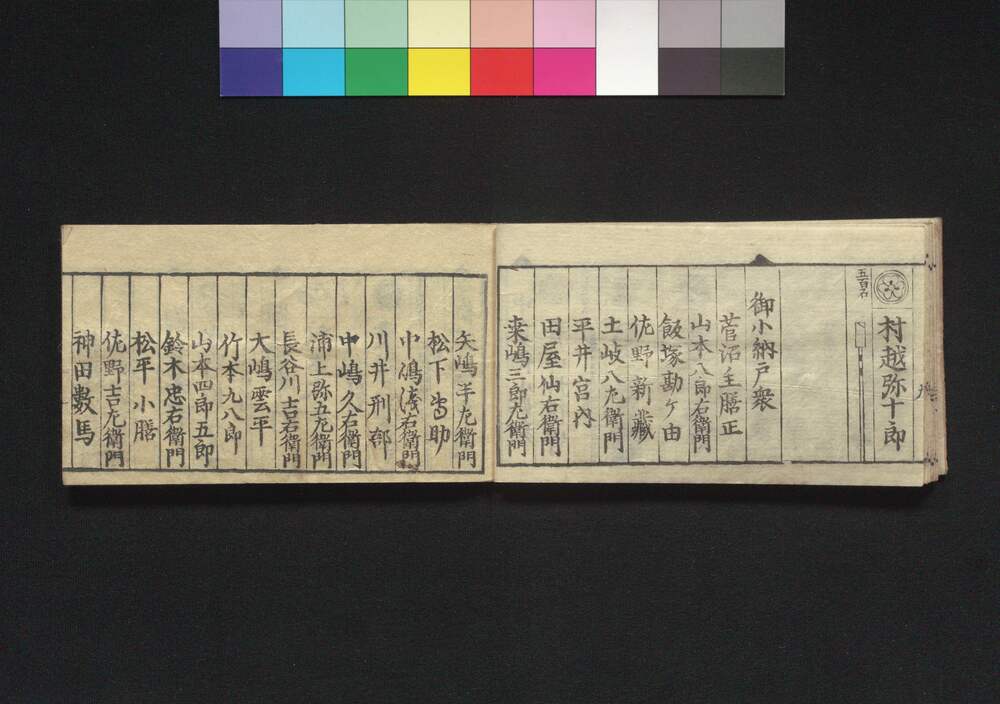 村越弥十郎
五百石
御小納戸衆
菅沼主膳正
山本八郎右衛門
飯塚勘ケ由
佐野新蔵
土岐八左衛門
平井宮内
田屋仙右衛門
桒嶋三郎左衛門
矢嶋半左衛門
松下当助
中嶋浅右衛門
川井刑部
中嶋久右衛門
浦上弥五左衛門
長谷川吉右衛門
大嶋雲平
竹本九八郎
山本四郎五郎
鈴木忠右衛門
松平小膳
佐野吉左衛門
神田数馬